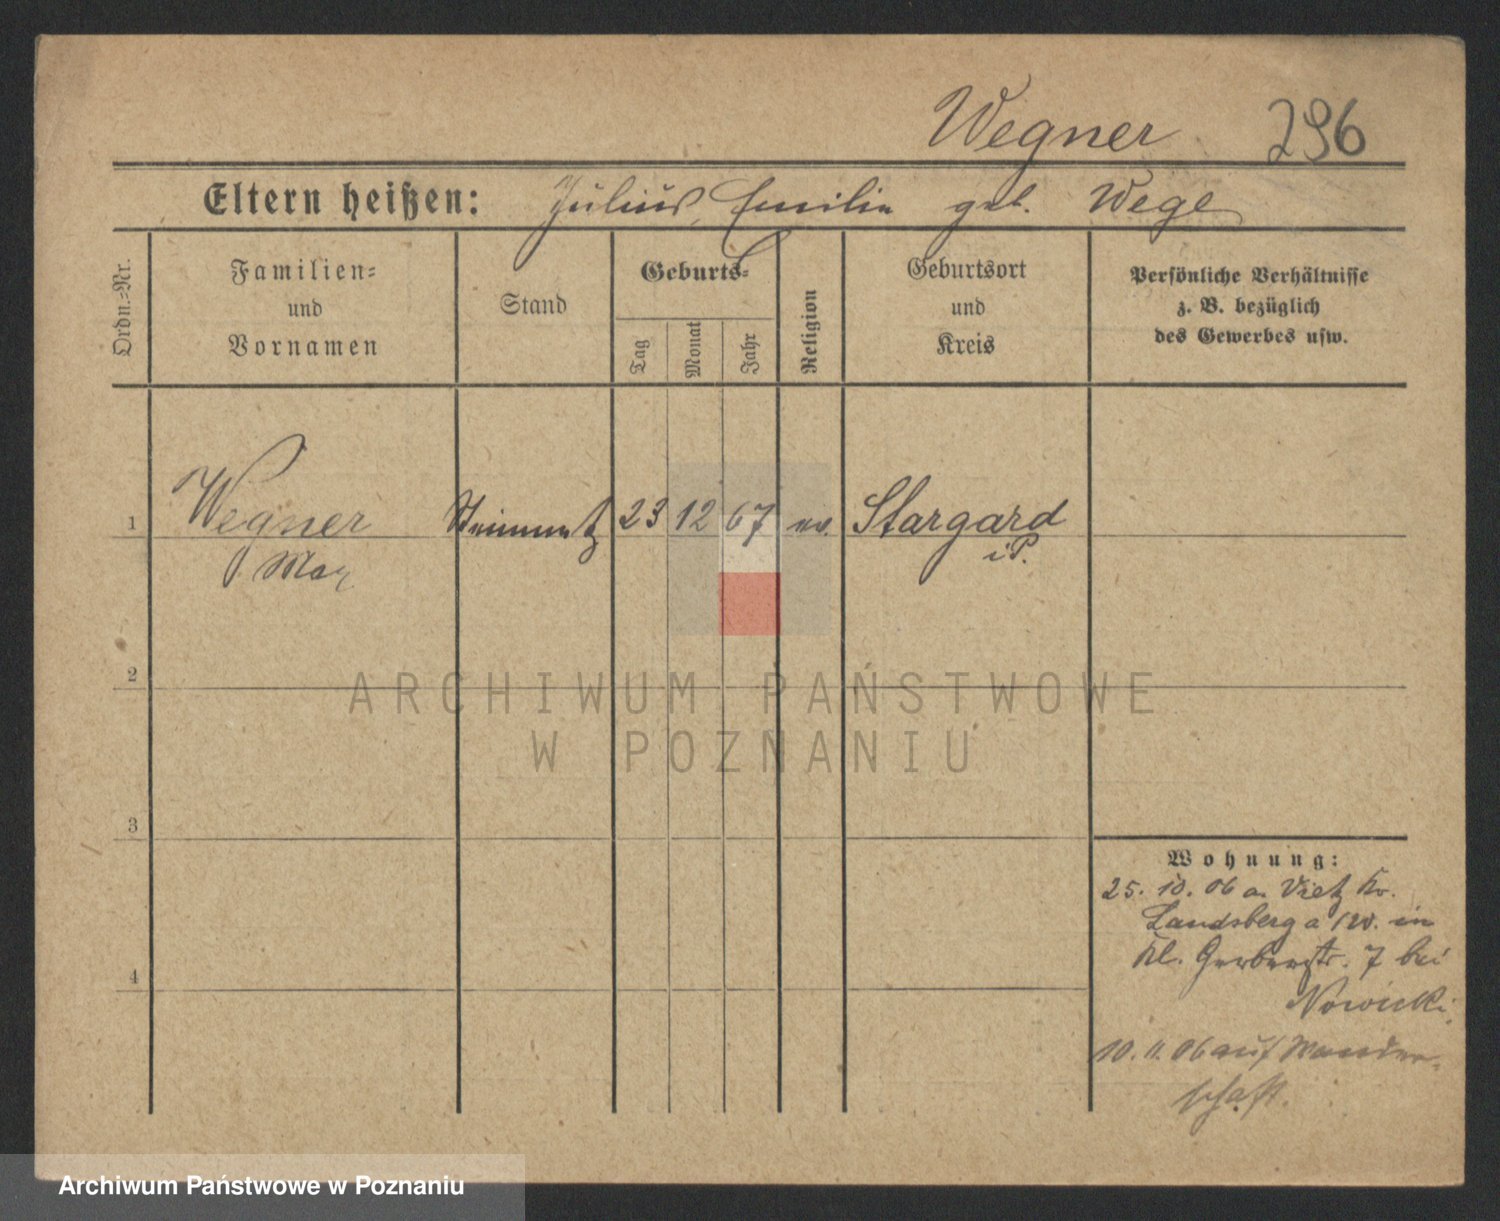 Wegner 296
Eltern heißen: Julius, Emilie geb. Wege
Ordn.=Nr.
Familien=
und
Vornamen
Stand
Geburts=
Tag
Monat
Jahr
Religion
Geburtsort
und
Kreis
Persönliche Verhältnisse
z. B. bezüglich
des Gewerbes usw.
1 Wegner Steinmetz 23 12 67 ev. Stargard
Max i P.
2
ARCHIWUM PAŃSTWOWE
W POZNANIU
3
Wohnung:
25. 10. 06 a. Vietz Kr.
Landsberg a W. in
Kl. Gerberstr. 7 bei
Nowicki.
4
10. 11. 06 auf Wander-
schaft.
Archiwum Państwowe w Poznaniu